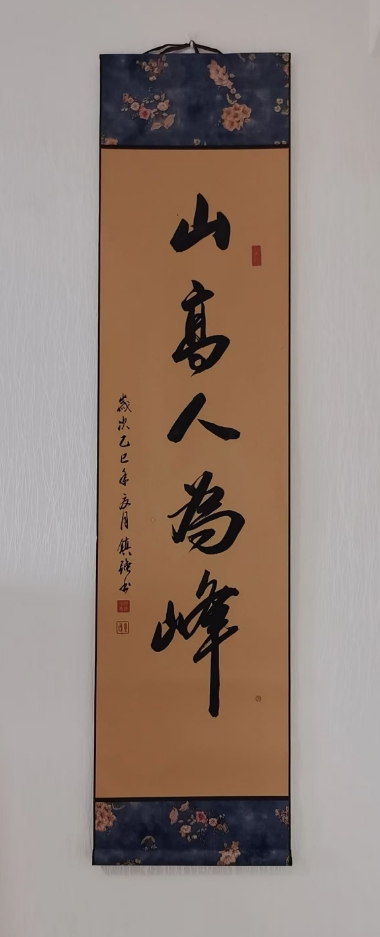 山高人為峰
歲次乙巳年夏月鎮強書